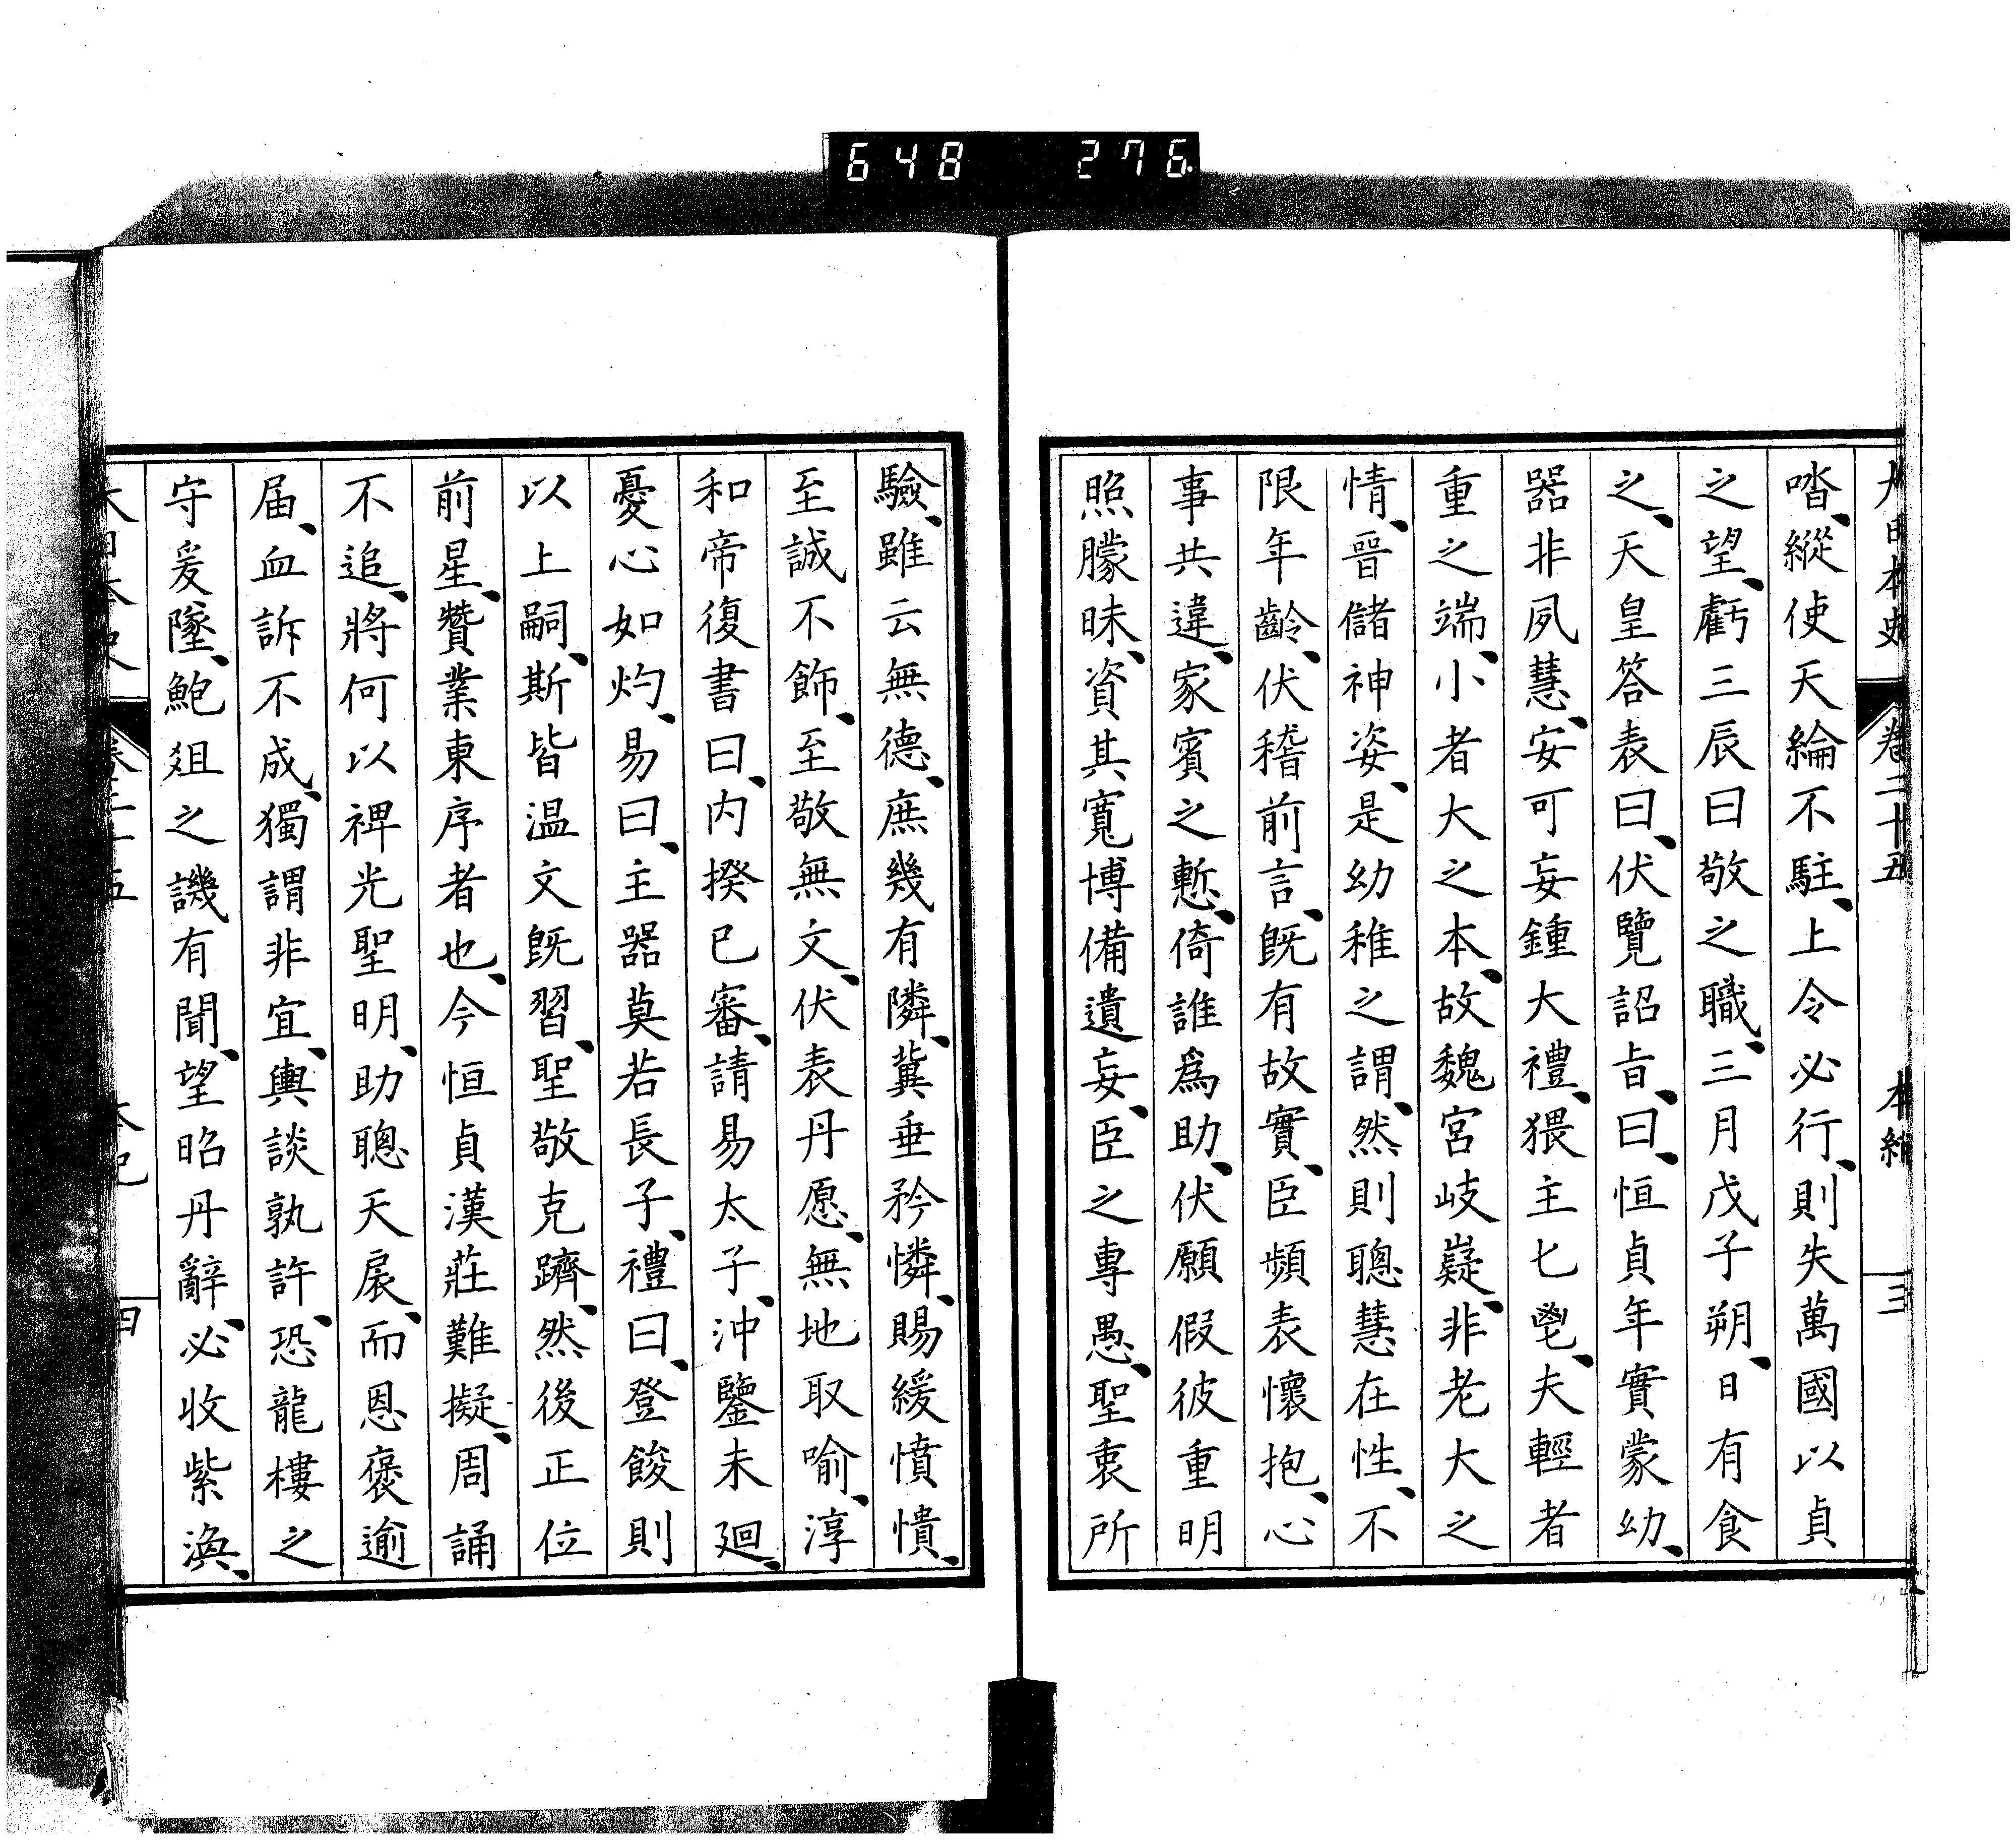 648 276
大日本史 卷二十五 本紀 三
喈、縱使天綸不駐、上令必行、則失萬國以貞
之望、虧三辰曰敬之職、三月戊子朔、日有食
之、天皇答表曰、伏覽詔旨、曰、恒貞年實蒙幼、
器非夙慧、安可妄鍾大禮、猥主匕鬯、夫輕者
重之端、小者大之本、故魏宮岐嶷、非老大之
情、晉儲神姿、是幼稚之謂、然則聰慧在性、不
限年齡、伏稽前言、既有故實、臣頻表懷抱、心
事共違、家賓之慙、倚誰爲助、伏願假彼重明
照朦昧、資其寬博備遺妄、臣之專愚、聖衷所
驗、雖云無德、庶幾有隣、冀垂矜憐、賜緩憤憒、
至誠不飾、至敬無文、伏表丹愿、無地取喻、淳
和帝復書曰、内揆已審、請易太子、沖鑒未廻、
憂心如灼、易曰、主器莫若長子、禮曰、登餕則
以上嗣、斯皆温文既習、聖敬克躋、然後正位
前星、贊業東序者也、今恒貞漢莊難擬、周誦
不追、將何以裨光聖明、助聰天扆、而恩褒逾
届、血訴不成、獨謂非宜、輿談孰許、恐龍樓之
守爰墜、鮑俎之譏有聞、望昭丹辭、必收紫渙、
大日本史 卷二十五 本紀 四